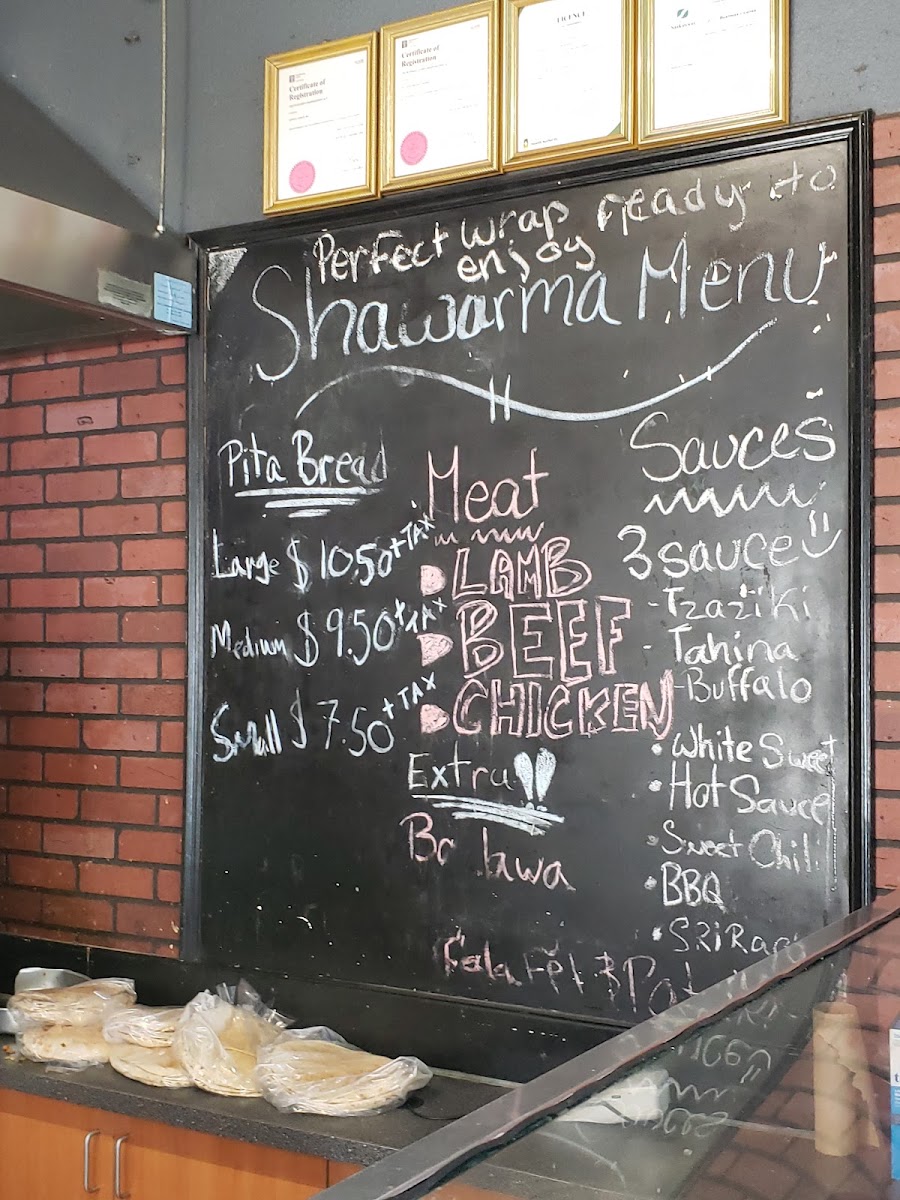 Certificate of
Registration
Certificate of
Registration
LICENCE
Perfect wrap ready to
enjoy
Shawarma Menu
Pita Bread
Large $10.50 + TAX
Medium $9.50 + TAX
Small $7.50 + TAX
Meat
LAMB
BEEF
CHICKEN
Extra!!
Falafel $
Sauces
3 sauce
- Tzaziki
- Tahina
- Buffalo
• White Sweet
• Hot Sauce
• Sweet Chili
• BBQ